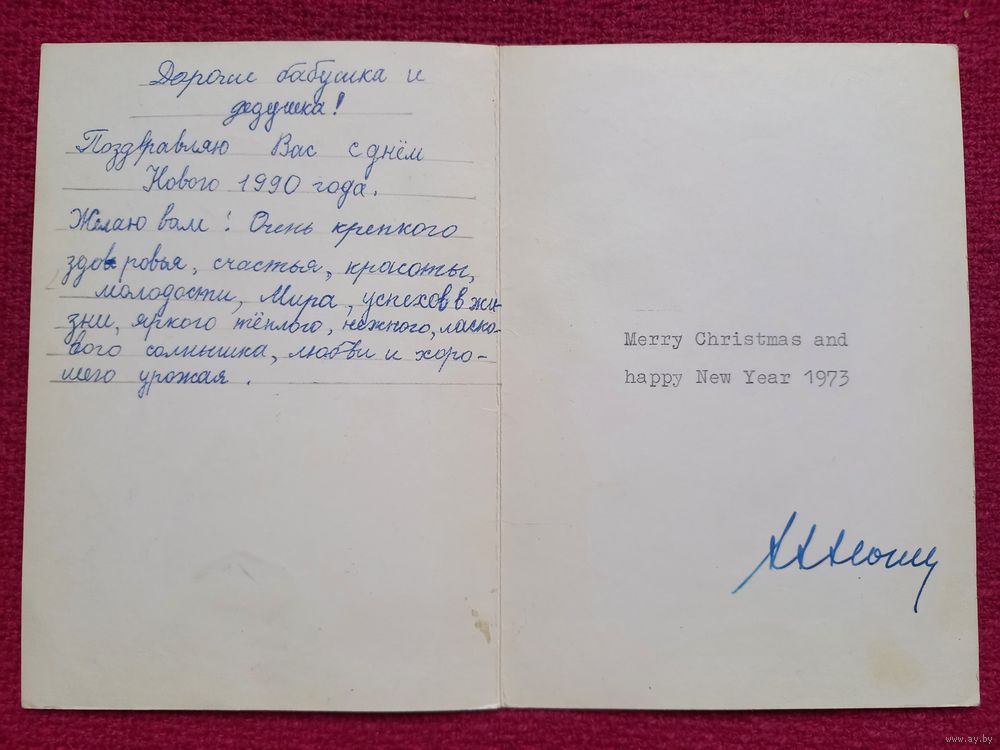 Дорогие бабушка и
дедушка!
Поздравляю Вас с днём
Нового 1990 года.
Желаю вам: Очень крепкого
здоровья, счастья, красоты,
молодости, Мира, успехов в жи-
зни, яркого тёплого, нежного, ласко-
вого солнышка, любви и хоро-
шего урожая.
Merry Christmas and
happy New Year 1973
www.ay.by